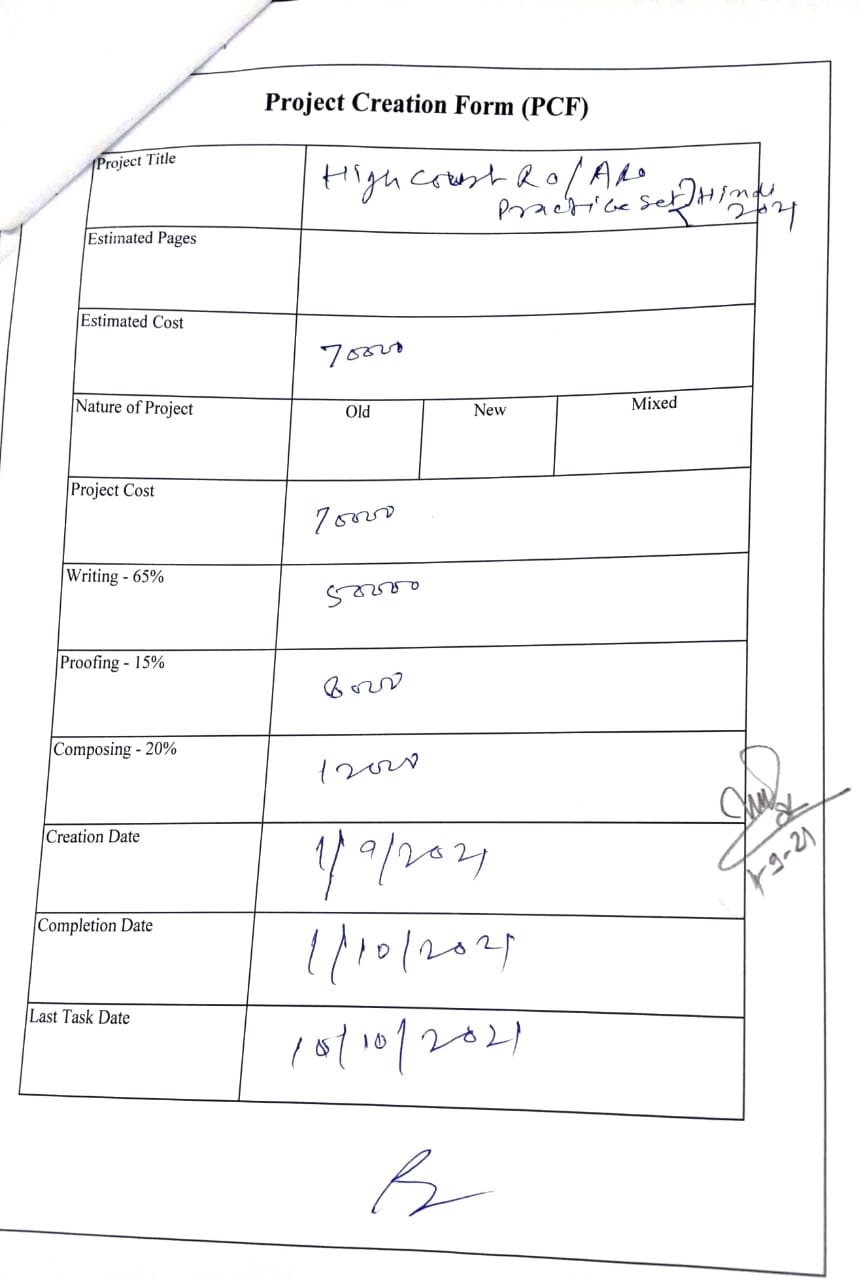 Project Creation Form (PCF)
Project Title
High Court RO/ARO
Practice Set Hindi
2021
Estimated Pages
Estimated Cost
70000
Nature of Project
Old New Mixed
Project Cost
70000
Writing - 65%
50000
Proofing - 15%
8000
Composing - 20%
12000
Creation Date
1/9/2021
Completion Date
1/10/2021
Last Task Date
10/10/2021